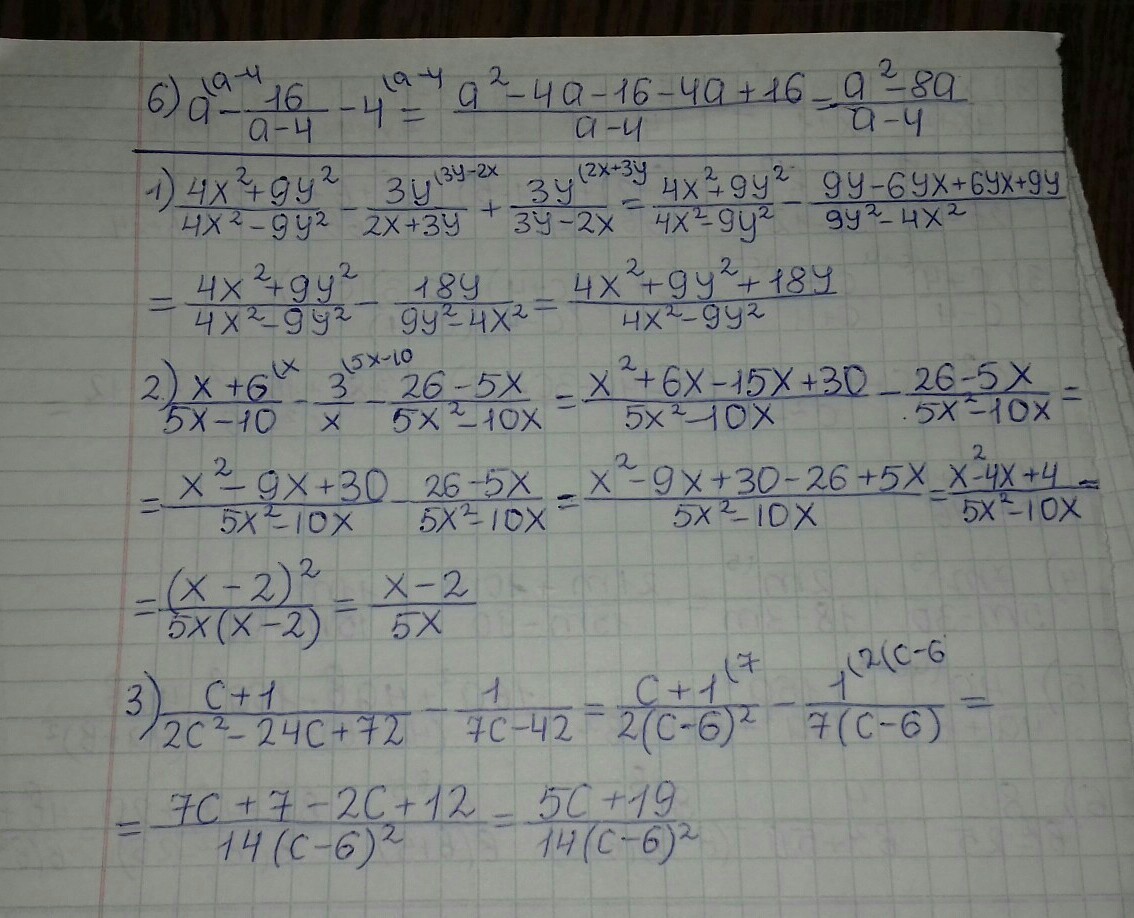 6) a^(a-4 - 16/(a-4) - 4^(a-4 = (a²-4a-16-4a+16)/(a-4) = (a²-8a)/(a-4)
1) (4x²+9y²)/(4x²-9y²) - 3y^(3y-2x/(2x+3y) + 3y^(2x+3y/(3y-2x) = (4x²+9y²)/(4x²-9y²) - (9y-6yx+6yx+9y)/(9y²-4x²)
= (4x²+9y²)/(4x²-9y²) - 18y/(9y²-4x²) = (4x²+9y²+18y)/(4x²-9y²)
2) x+6^(x/(5x-10) - 3^(5x-10/x - (26-5x)/(5x²-10x) = (x²+6x-15x+30)/(5x²-10x) - (26-5x)/(5x²-10x) =
= (x²-9x+30)/(5x²-10x) - (26-5x)/(5x²-10x) = (x²-9x+30-26+5x)/(5x²-10x) = (x²-4x+4)/(5x²-10x) =
= (x-2)²/(5x(x-2)) = (x-2)/(5x)
3) (c+1)/(2c²-24c+72) - 1/(7c-42) = c+1^(7/(2(c-6)²) - 1^(2(c-6/(7(c-6)) =
= (7c+7-2c+12)/(14(c-6)²) = (5c+19)/(14(c-6)²)